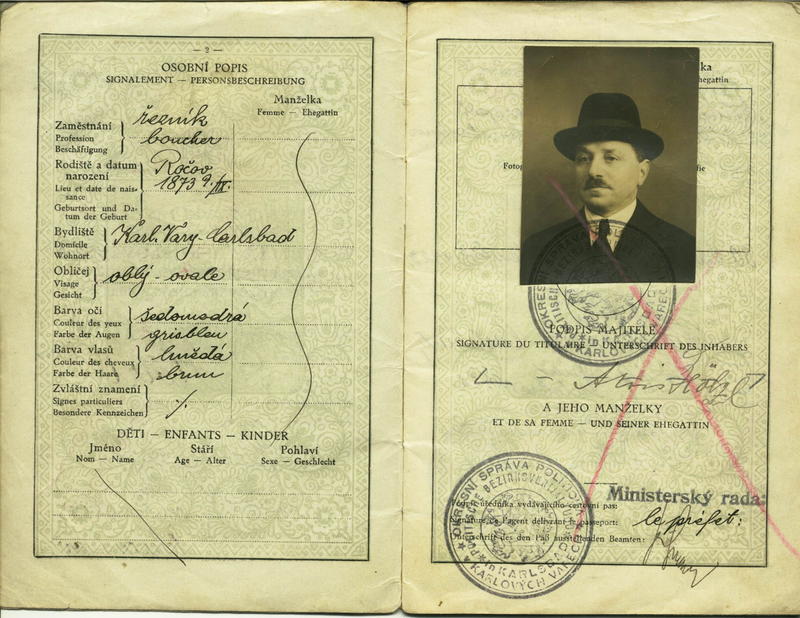 — 2 —
OSOBNÍ POPIS
SIGNALEMENT — PERSONSBESCHREIBUNG
Manželka
Femme — Ehegattin
Zaměstnání
Profession
Beschäftigung
řezník
boucher
Rodiště a datum
narození
Lieu et date de nais-
sance
Geburtsort und Da-
tum der Geburt
Ročov
1873 9./III.
Bydliště
Domicile
Wohnort
Karl. Vary - Carlsbad
Obličej
Visage
Gesicht
oblý - ovale
Barva očí
Couleur des yeux
Farbe der Augen
šedomodrá
grisbleu
Barva vlasů
Couleur des cheveux
Farbe der Haare
hnědá
brun
Zvláštní znamení
Signes particuliers
Besondere Kennzeichen
%
DĚTI — ENFANTS — KINDER
Jméno
Nom — Name
Stáří
Age — Alter
Pohlaví
Sexe — Geschlecht
ka
Ehegattin
Fotog
fie
OKRESNÍ SPRÁVA
KARLOVÝCH
PODPIS MAJITELE
SIGNATURE DU TITULAIRE — UNTERSCHRIFT DES INHABERS
Alois
A JEHO MANŽELKY
ET DE SA FEMME — UND SEINER EHEGATTIN
OKRESNÍ SPRÁVA POLITICKÁ
POLITISCHE BEZIRKSVERWALTUNG
in KARLSBAD
KARLOVÝCH VARECH
Ministerský rada:
úředníka vydávajícího cestovní pas:
Signature de l'agent délivrant le passeport:
le préfet:
Unterschrift des den Paß ausstellenden Beamten: